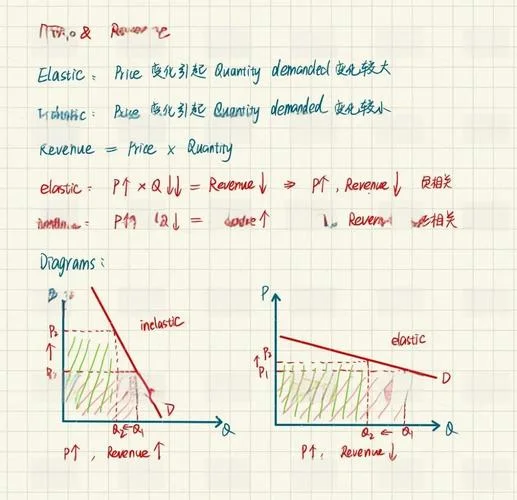 &
Elastic: Price 变化引起 Quantity demanded 变化较大
变化引起 Quantity demanded 变化较小
Revenue = Price × Quantity
elastic: P↑ × Q↓↓ = Revenue↓ ⇒ P↑, Revenue↓ 负相关
P↑ ↓ = ↑ Reven 相关
Diagrams:
P₂
↑
inelastic
D
Q₂ ← Q₁
Q
P↑, Revenue↑
P
P₂
↑ P₁
elastic
D
Q₂ ← Q₁
Q
P↑, Revenue↓